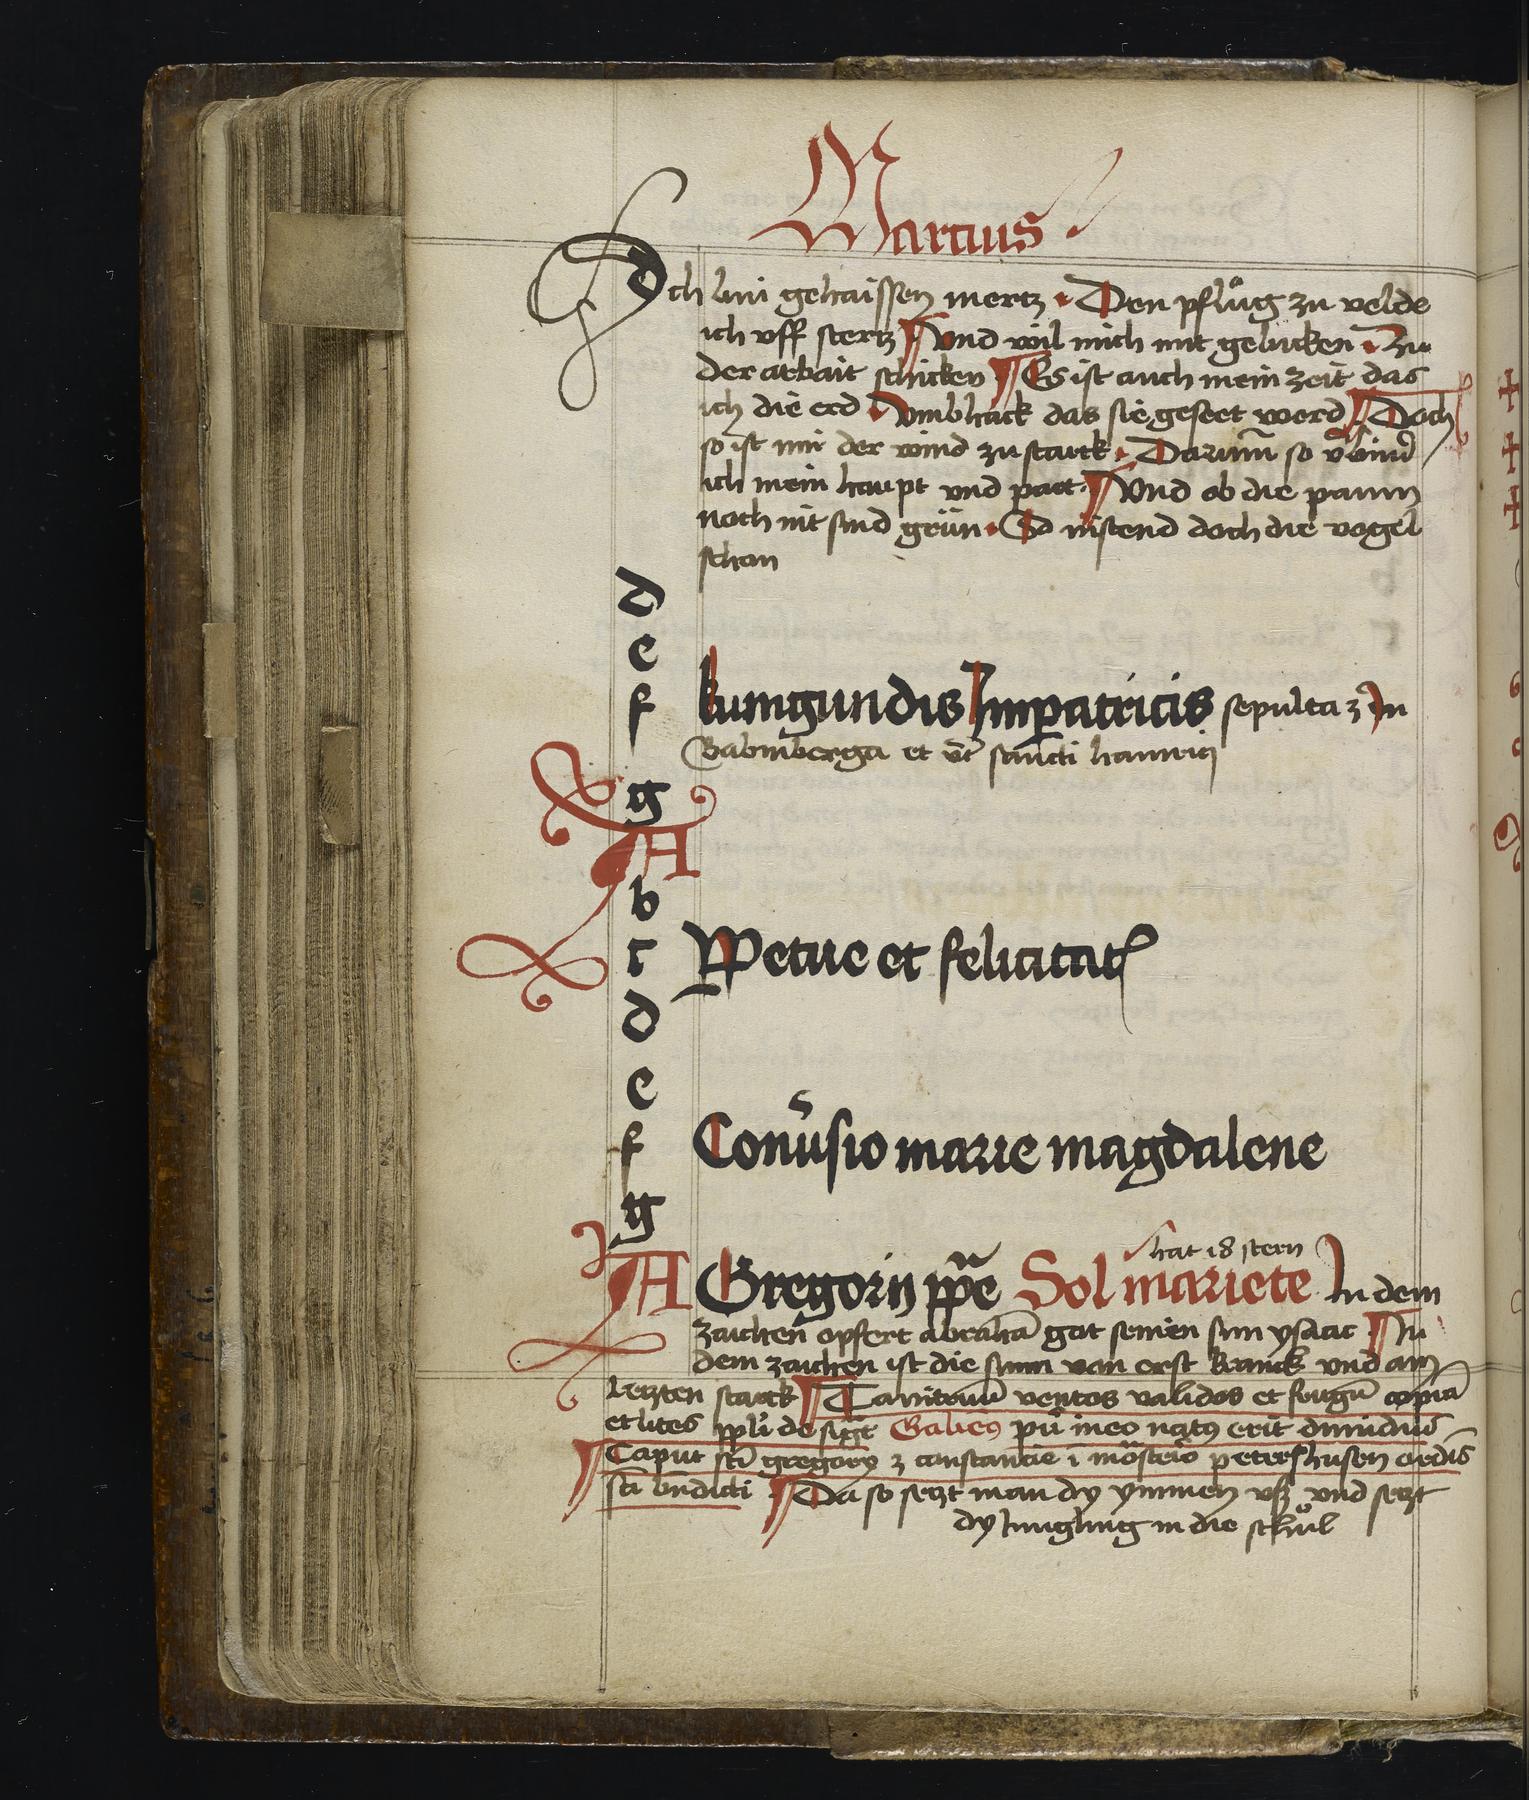 Marcius
Ich bin gehaissen mertz · Den pflůg zu velde
ich uff stertz Und wil mich mit gebucken · Zu
der arbait schicken Es ist auch mein zeit das
ich die erd · Umbhack das sie geseet werd Doch
so ist mir der wind zu starck · Darumb so
ich mein haupt und part · Und ob die paum
noch nit sind grün · So nistend doch die vogel
schon
d
e
f kunigundis Imperatricis sepulta in
Babmberga et sancti hainrici
g
A
b
c Ppetue et felicitatꝭ
d
e
f Conv̄sio marie magdalene
g
hat 18 stern
A Gregorij ppē Sol in ariete In dem
zaichen opfert abrahā got seinen sun ysaac In
dem zaichen ist die sunn von erst kranck und am
letzten starck Tonitruū ventos validos et frugū copiā
et lites ppli de sigt Galienꝰ pu in eo natꝰ erit
Caput scti gregorij constancie ī petershusen ordīs
scti bndicti Da so setzt man dy ymmen uß und setzt
dy Jungling in die schůl